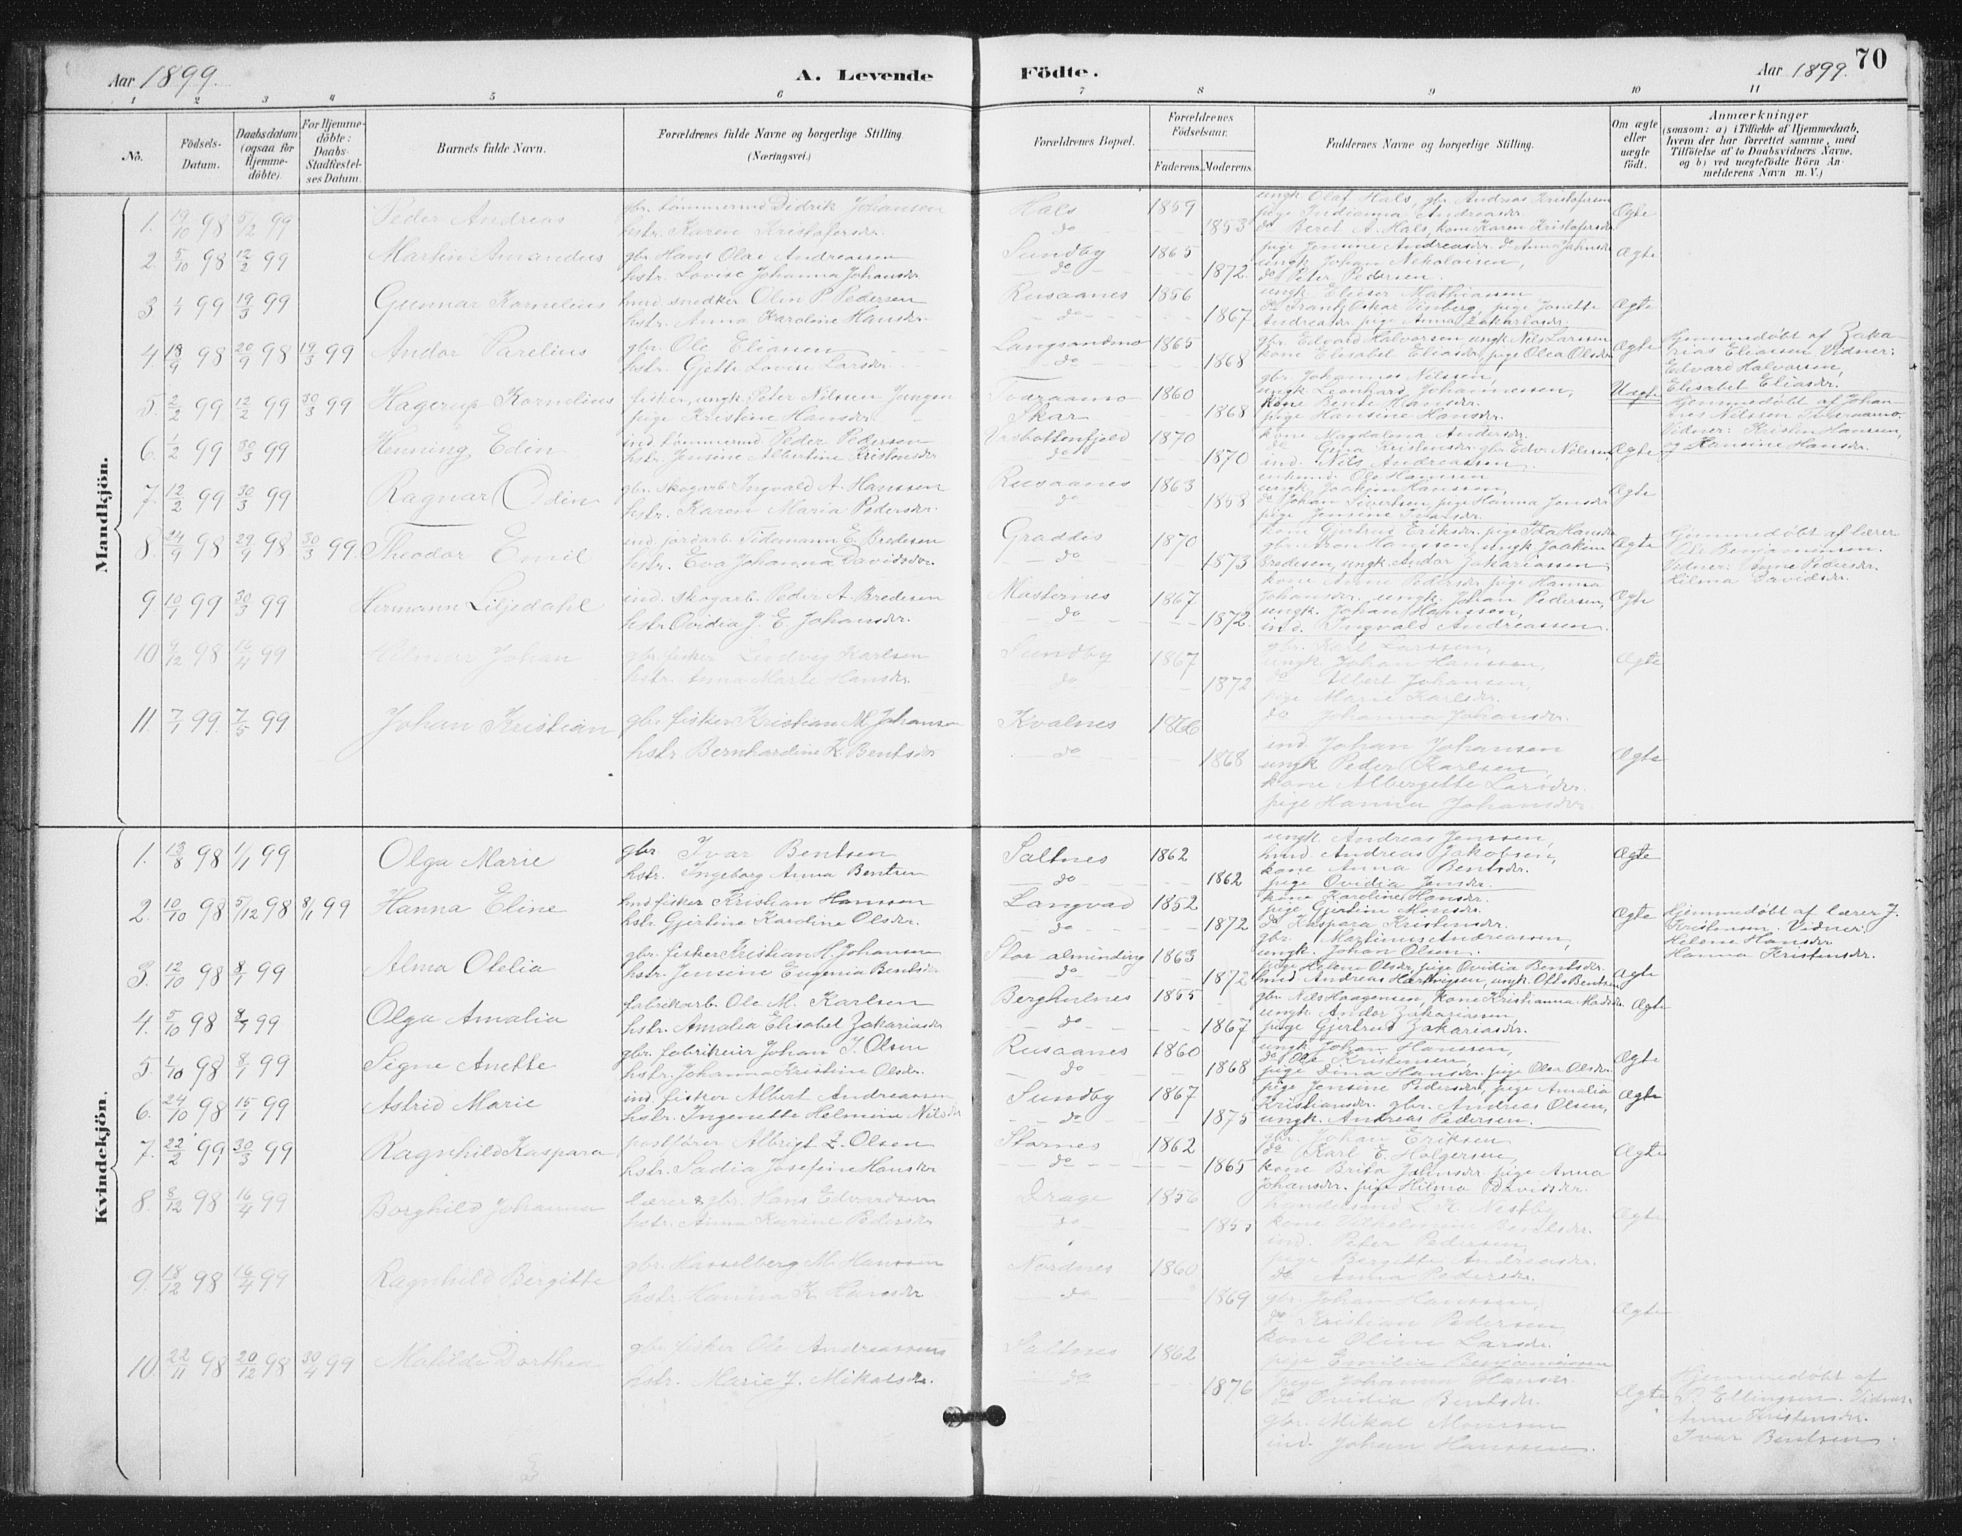 Aar 1899.
A. Levende
Födte.
Aar 1899.
70
1 2 3 4 5 6 7 8 9 10 11
No.
Födsels-
Datum.
Daabsdatum
(ogsaa for
Hjemme-
döbte).
For Hjemme-
döbte:
Daabs-
Stadfæstel-
ses Datum.
Barnets fulde Navn.
Forældrenes fulde Navne og borgerlige Stilling.
(Næringsvei.)
Forældrenes Bopæl.
Forældrenes
Födselsaar.
Faderens. Moderens.
Faddernes Navne og borgerlige Stilling.
Om ægte
eller
uægte
födt.
Anmærkninger
(saasom: a) i Tilfælde af Hjemmedaab,
hvem der har forrettet samme, med
Tilföielse af to Daabsvidners Navne,
og b) ved uegtefödte Börn An-
melderens Navn m. V.)
Mandkjön.
1. 19/10 98 5/2 99 Peder Andreas
gbr. tömmermd Didrik Johansen
hstr. Karen Kristofersdr.
Hals 1859
do 1853
ungk Olaf Hals, gbr. Andreas Kristofersen
pige Indianna Andreasdr.
do Beret A. Hals, kone Karen Kristofersdr.
Ægte
2. 5/10 98 12/2 99 Martin Amandus
gbr. Hans Olai Andreassen
hstr. Lovise Johanna Johansdr
Sundby 1865
do 1872
pige Jensine Andreasdr. do Anna Johnsdr
ungk Johan Nikolaisen,
do Peter Pedersen.
Ægte
3 1/1 99 19/3 99 Gunnar Kornelius
hmd. snedker Olin P. Pedersen
hstr. Anna Karoline Hansdr.
Rusaanes 1856
do 1867
ungk Elieser Mathiassen
pige Jonette
Andreasdr. pige Anna Zakariasdr.
Ægte
4 18/9 98 20/9 98 19/3 99 Andor Parelius
gbr. Ole Eliasen
hstr. Gjette Lovise Larsdr.
Langsandmo 1865
do 1868
gbr. Edvard Halvorsen ungk. Nils Larssen
kone Elisabet Eliasdr, pige Olea Olsdr
Ægte
Hjemmedöbt af Zaka-
rias Eliassen Vidner:
Edvard Halvorsen,
Elisabet Eliasdr.
5. 2/2 99 12/2 99 30/3 99 Hagerup Kornelius
fisker, ungk. Peter Nilsen
pige Kristine Hansdr.
Tveraamo 1860
Skar 1868
gbr. Johannes Nilssen,
ungk. Leonhard Johannessen,
kone Bente Hansdr.
pige Hansine Hansdr.
Uægte
Hjemmedöbt af Johan-
nes Nilssen Tveraamo.
Vidner: Kristin Hansen,
og Hansine Hansdr.
6. 1/2 99 30/3 99 Henning Edin
ind. tömmermd Peder Pedersen
hstr. Jensine Albertine Kristensdr
Vasbottenfjeld 1870
do 1870
kone Magdalena Andersdr.
do Gina Kristensdr. gbr. Edv. Nilssen,
ind. Nils Andreassen.
Ægte
7. 12/2 99 30/3 99 Ragnar Odin
gbr. skogarb. Ingvald A. Hanssen
hstr. Karen Maria Pedersdr.
Rusaanes 1863
do 1858
enkemd. Ole Hanssen
ungk. Joakim Hanssen,
do Johan Sivertsen, pige Hanna Jensdr
pige Jensine Ivarsdr.
Ægte
8. 24/9 98 29/9 98 30/3 99 Theodor Emil
ind. jordarb. Tidemann E. Bredesen
hstr. Eva Johanna Davidsdr.
Graddis 1870
do 1873
kone Gjertrud Eriksdr. pige Ida Hansdr
gbr. Aron Hanssen, ungk Joakim
Bredesen, ungk. Andor Zakariassen
Ægte
Hjemmedöbt af lærer
Benjaminsen.
Vidner: Anne Pedersdr.
Hilma Davidsdr.
9 10/1 99 30/3 99 Hermann Liljedahl
ind. skogarb. Peder A. Bredesen
hstr Ovidia J. E. Johansdr.
Mastornes 1867
do 1872
kone Anne Pedersdr. pige Hanna
Johansdr. ungk. Johan Pedersen,
ungk. Johan Hanssen,
ind. Ingvald Andreassen.
Ægte
10 9/12 98 16/4 99 Hilmar Johan
gbr. fisker Ludvig Karlsen
hstr. Anna Marie Hansdr.
Sundby 1867
do 1872
gbr. Karl Larssen,
ungk Johan Hanssen,
do Albert Johansen,
pige Marie Karlsdr.
do Johanna Johansdr.
Ægte
11 7/1 99. 7/5 99 Johan Kristian
gbr. fisker Kristian M. Johansen
hstr. Bernhardine K. Bentsdr
Kvalnes 1866
do 1868
ind. Johan Johansen
ungk Peder Karlsen
kone Albergitte Larsdr.
pige Hanna Johansdr.
Ægte
Kvindekjön.
1. 13/8 98 1/1 99 Olga Marie
gbr. Ivar Bentsen
hstr. Ingeborg Anna Bentsen
Saltnes 1862
do 1862
ungk. Andreas Jenssen,
hmd Andreas Jakobsen,
kone Anna Bentsdr.
pige Ovidia Jensdr.
Ægte
2. 10/10 98 5/12 98 8/1 99 Hanna Eline
hmd fisker Kristian Hanssen
hstr. Gjertine Karoline Olsdr.
Langvad 1852
do 1872
kone Karoline Hansdr.
pige Gjertine Monsdr.
do Kaspara Kristensdr.
gbr. Martinus Andreassen,
ungk. Johan Olsen.
Ægte
Hjemmedöbt af lærer J.
Kristensen. Vidner:
Helene Hansdr
Hanna Kristensdr.
3. 12/10 98 8/1 99 Alma Otelia
gbr. fisker Kristian H. Johansen
hstr. Jensine Eugenia Bentsdr
Stor almínding 1863
do 1872
pige Helene Olsdr. pige Ovidia Bentsdr.
hmd Andreas Hartvigsen, ungk. Ott. Bentsen
Ægte
4. 5/10 98 8/1 99 Olga Amalia
fabrikarb. Ole M. Karlsen
hstr. Amalia Elisabet Zakariasdr
Bergkulnes 1855
do 1867
gbr. Nils Haagensen, kone Kristianna Madsdr
ungk. Andor Zakariassen,
pige Gjertrud Zakariasdr.
Ægte
5. 1/10 98 8/1 99 Signe Anette
gbr. fabrikeier Johan J. Olsen
hstr. Johanna Kristine Olsdr.
Rusaanes 1860
do 1868
ungk Johan Hanssen,
do Ole Kristensen,
pige Dina Hansdr. pige Olea Olsdr.
Ægte
6. 24/10 98 15/1 99 Astrid Marie
ind. fisker Albert Andreassen
hstr. Ingenette Helmine Nilsdr
Sundby 1867
do 1875
pige Jensine Pedersdr, pige Amalia
Kristiansdr. gbr. Andreas Olsen,
ungk. Andreas Pedersen.
Ægte
7. 22/2 99 30/3 99 Ragnhild Kaspara
postförer Albrigt Z. Olsen
hstr. Sadia Josefine Hansdr
Stornes 1862
do 1865
gbr. Johan Eriksen
do Karl E. Holgersen,
kone Brita Johnsdr. pige Anna
Johansdr. pige Hilma Davidsdr.
Ægte
8. 8/12 98 16/4 99 Borghild Johanna
lærer & gbr. Hans Edvardsen
hstr. Anna Karine Pedersdr.
Drage 1856
do 1855
handelsmd L. K. Nestby
kone Vilhelmine Bentsdr.
ind. Peter Pedersen,
pige Bergitte Andreasdr.
do Anna Pedersdr.
Ægte
9. 18/12 98 16/4 99 Ragnhild Bergitte
gbr. Hasselberg M. Hanssen
hstr. Hanna K. Hansdr
Nordnes 1860
do 1869
gbr. Johan Hanssen,
do Kristian Pedersen
kone Oline Larsdr.
pige Emilie Benjaminsen
Ægte
10. 22/11 98 20/12 98 30/4 99 Matilde Dorthea
gbr. fisker Ole Andreassen
hstr. Marie J. Mikalsdr.
Saltnes 1862
do 1876
pige Johanna Hansdr.
do Ovidia Bentsdr.
gbr. Mikal Monsen
ind. Johan Hanssen.
Ægte
Hjemmedöbt af
P. Ellingsen. Vidner:
Anne Kristensdr.
Ivar Bentsen.